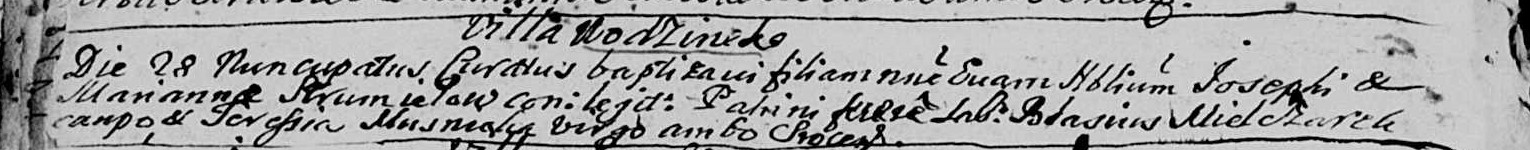 Villa Wodzinek
Die 28 Nuncupatus Curatus baptizavi filiam nñe Evam Hblium Josephi &
Mariannæ Strumielow con: legit: Patrini fuere Lab: Blasius Mielczarek
caupo & Teressia virgo ambo